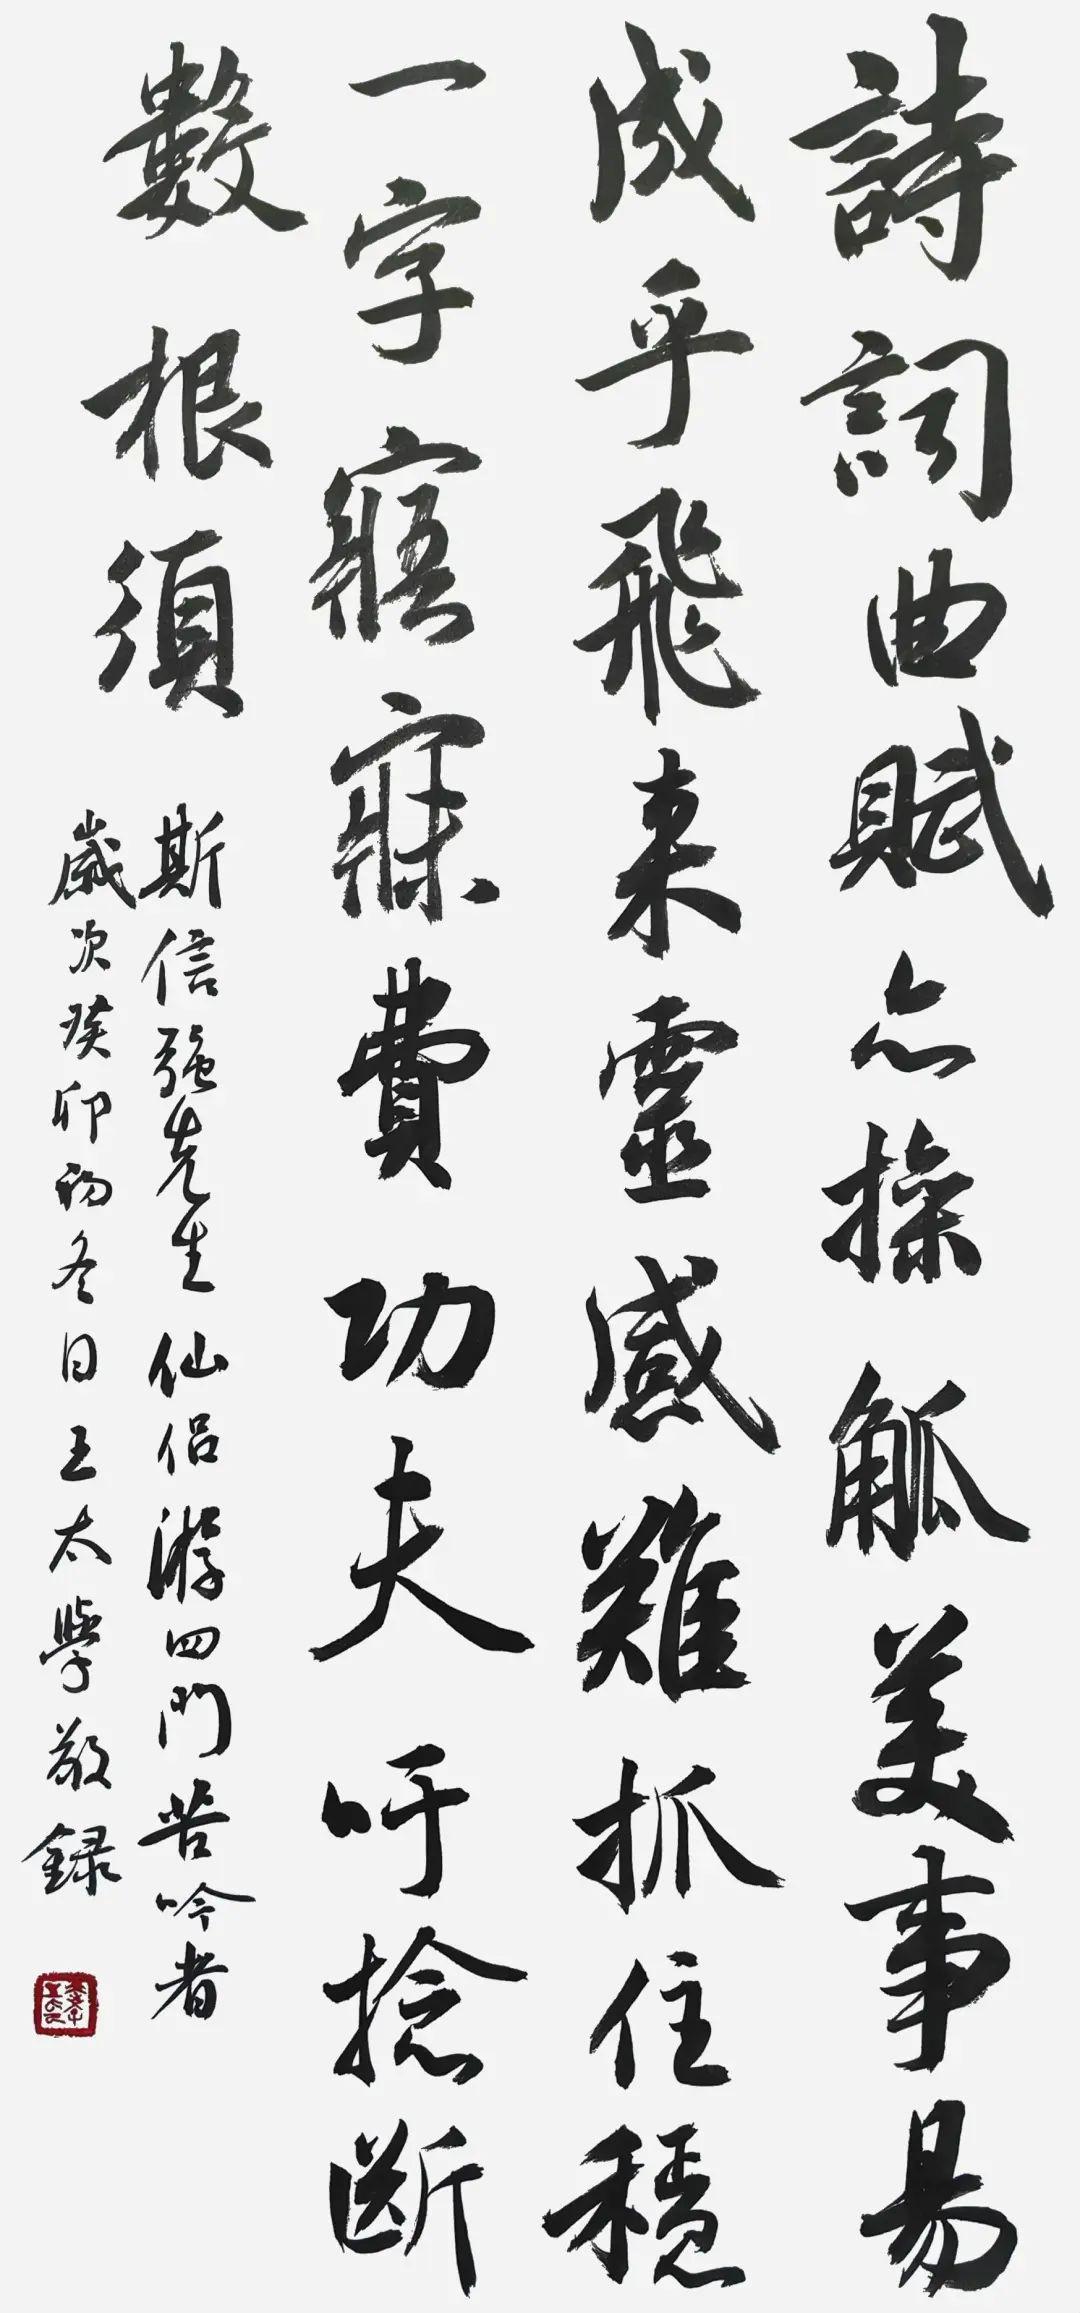 詩詞曲賦亦操觚美事易
成乎飛來靈感難抓住穩
一字寤寐費功夫吁捻斷
數根須
斯信強先生仙侣游四門苦吟者
歲次癸卯初冬日王太學敬録